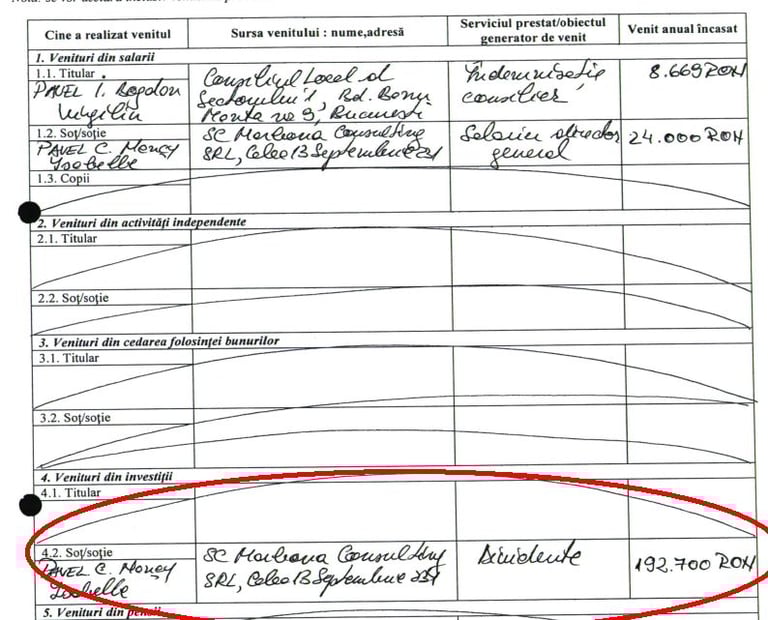 Cine a realizat venitul
Sursa venitului : nume,adresă
Serviciul prestat/obiectul
generator de venit
Venit anual încasat
1. Venituri din salarii
1.1. Titular
PAVEL I. Bogdan
Virgiliu
Consiliul Local al
Sectorului 1, Bd. Banu
Manta nr 9, București
Indemnizație
consilier
8.669 RON
1.2. Soț/soție
PAVEL C.
SC Consulting
SRL, Calea 13 Septembrie
Salariu director
general
24.000 RON
1.3. Copii
2. Venituri din activități independente
2.1. Titular
2.2. Soț/soție
3. Venituri din cedarea folosinței bunurilor
3.1. Titular
3.2. Soț/soție
4. Venituri din investiții
4.1. Titular
4.2. Soț/soție
PAVEL C.
SC Consulting
SRL, Calea 13 Septembrie
Dividente
192.700 RON
5. Venituri din pensii